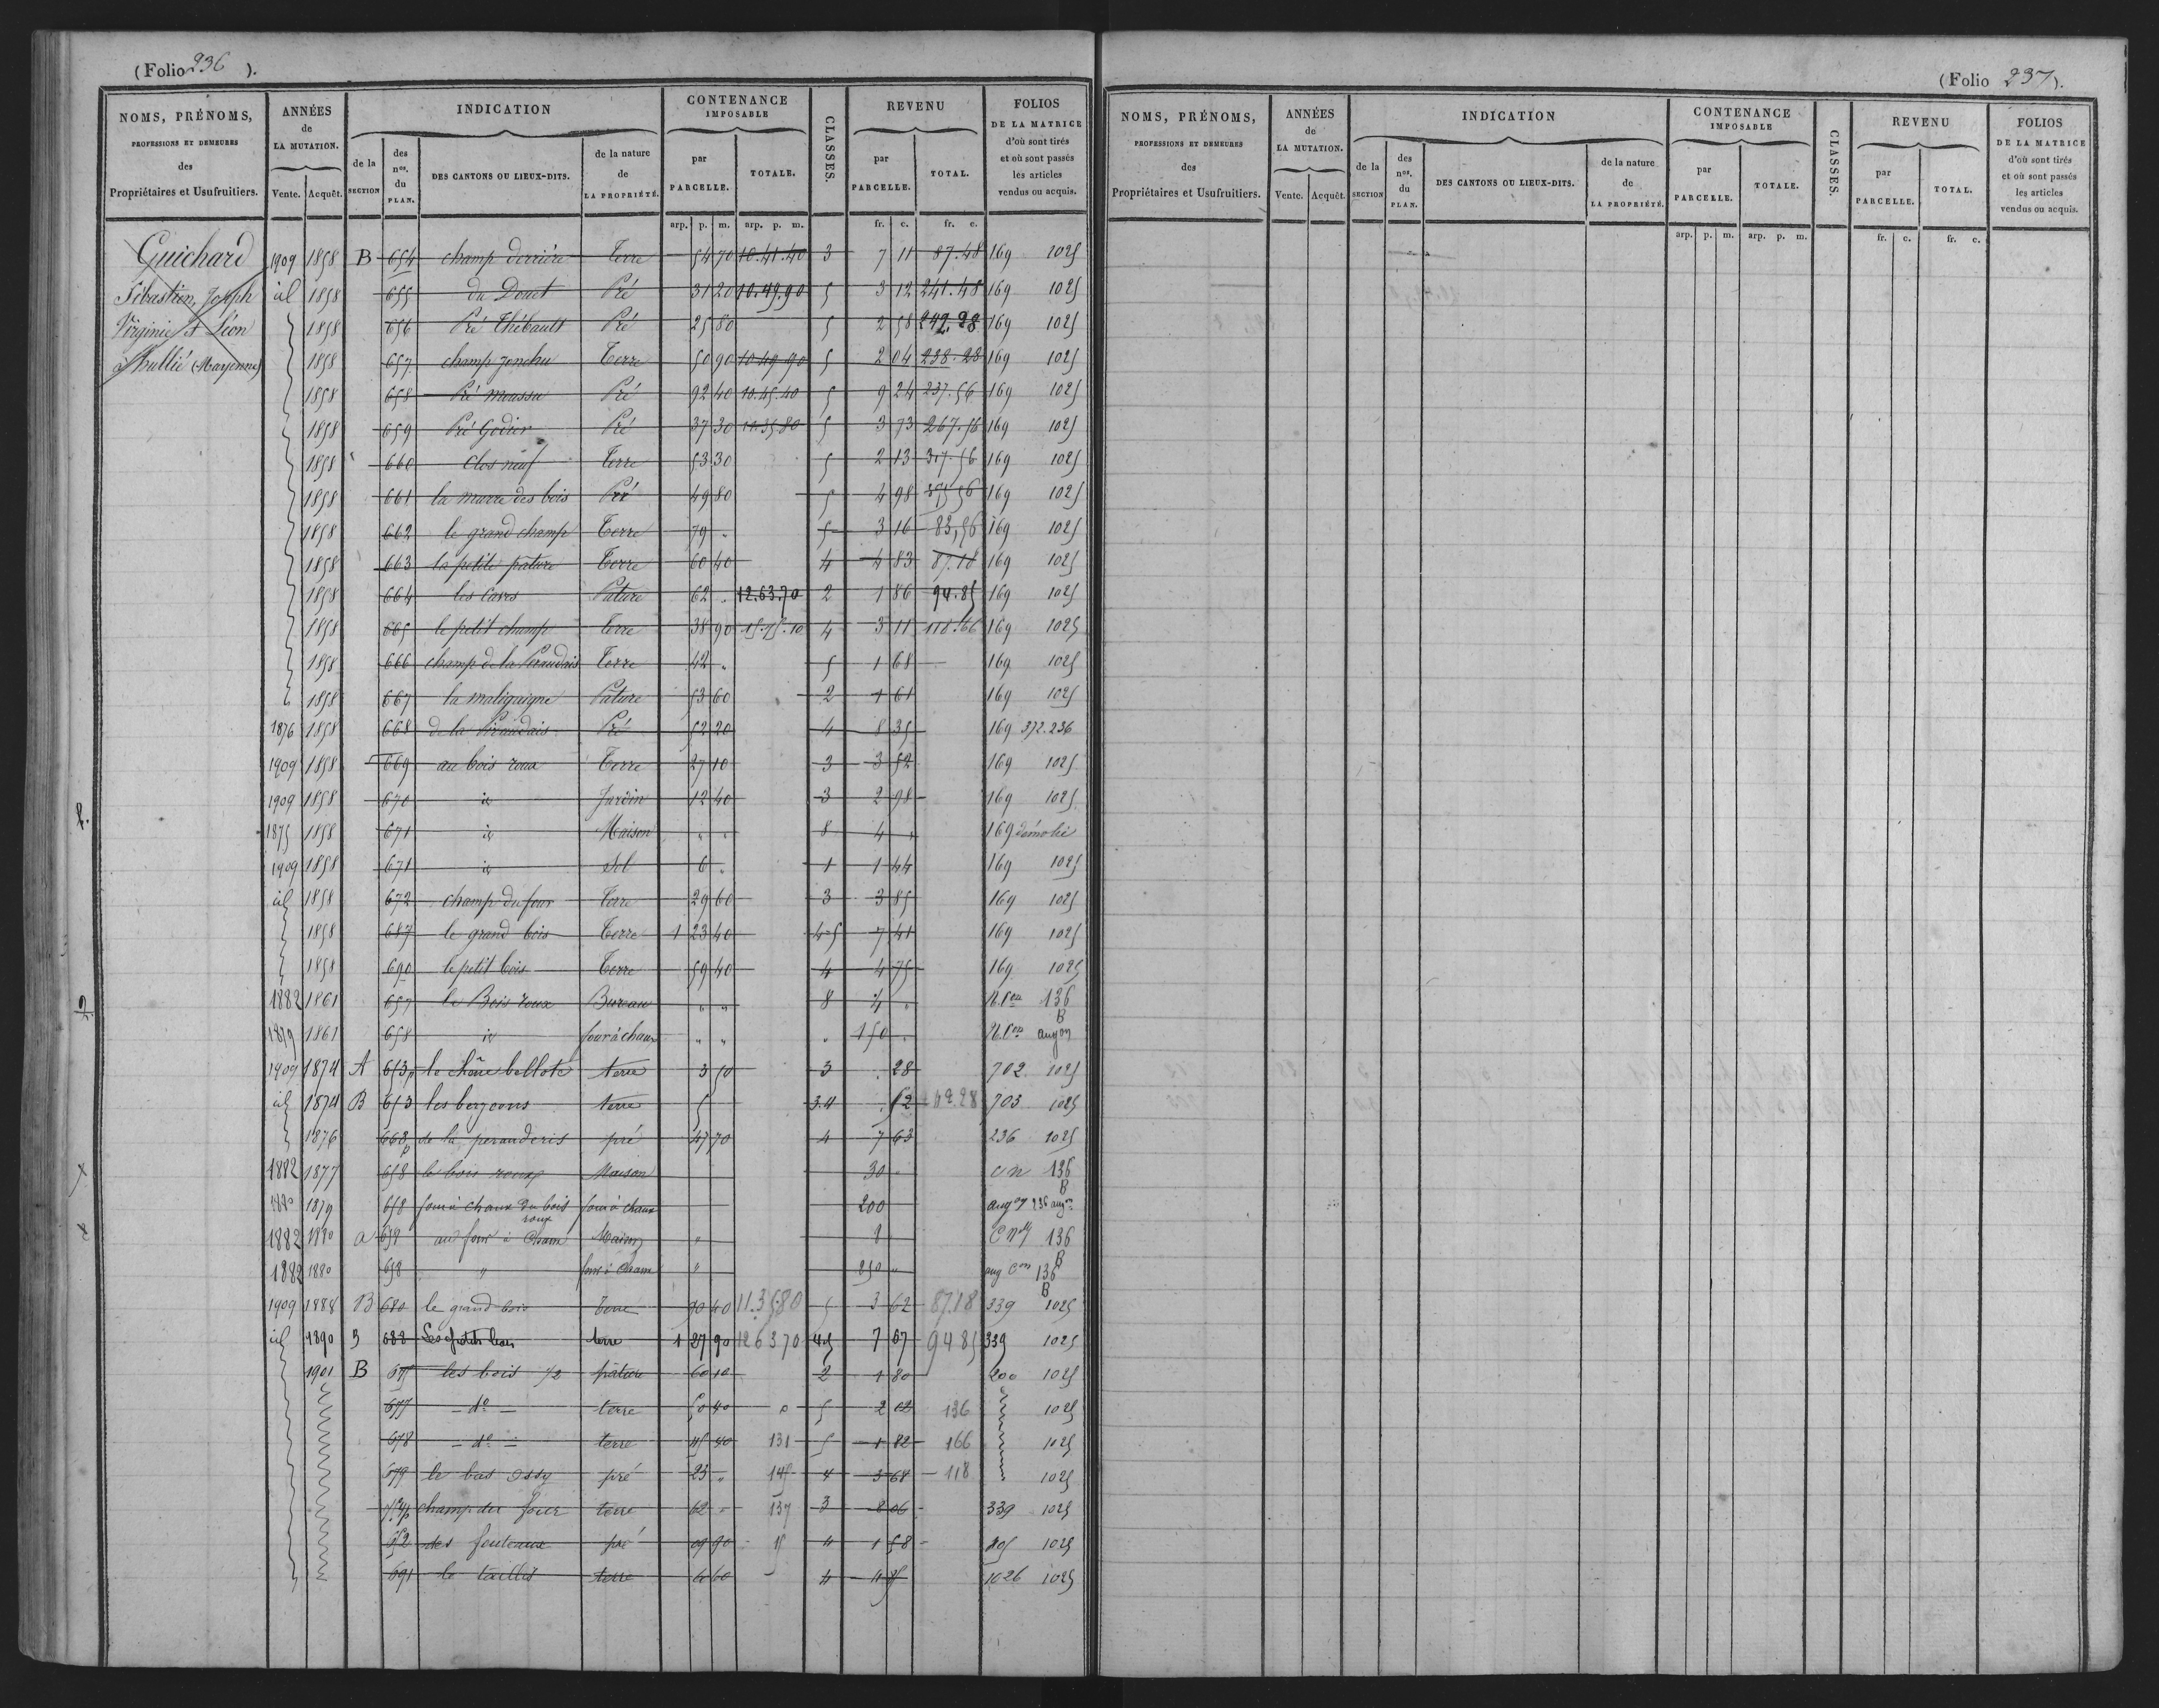 (Folio 236 ).
NOMS, PRÉNOMS, PROFESSIONS ET DEMEURES des Propriétaires et Usufruitiers.
ANNÉES de LA MUTATION. Vente. Acquêt.
INDICATION de la SECTION des nos. du PLAN. DES CANTONS OU LIEUX-DITS. de la nature de LA PROPRIÉTÉ.
CONTENANCE IMPOSABLE par PARCELLE. TOTALE.
CLASSES.
REVENU par PARCELLE. TOTAL.
FOLIOS DE LA MATRICE d'où sont tirés et où sont passés les articles vendus ou acquis.
arp. p. m. arp. p. m. fr. c. fr. c.
Guichard
Sébastien, Joseph
Virginie et Léon
à Thullié (Mayenne)
1909 1858 B 654 champ derrière Terre 54 70 10.41.40 3 7 11 87.48 169 1025
id 1858 655 du Douet Pré 31 20 10.49.90 5 3 12 241.48 169 1025
1858 656 Pré Thébault Pré 25 80 5 2 58 242.28 169 1025
1858 657 champ jonchu Terre 50 90 10.49.90 5 2 04 238.28 169 1025
1858 658 Pré moussu Pré 92 40 10.45.40 5 9 24 237.56 169 1025
1858 659 Pré Godier Pré 37 30 11.35.80 5 3 73 267.56 169 1025
1858 660 clos neuf Terre 53 30 5 2 13 317.56 169 1025
1858 661 la marre des bois Pré 49 80 5 4 98 169 1025
1858 662 le grand champ Terre 79 " 5 3 16 83,56 169 1025
1858 663 la petite pature Terre 60 40 4 4 83 87.18 169 1025
1858 664 les caves Pature 62 " 12.63.70 2 1 86 94.85 169 1025
1858 665 le petit champ Terre 38 90 15.75.10 4 3 11 118.66 169 1025
1858 666 champ de la Peraudais Terre 42 " 5 1 68 169 1025
1858 667 la maliguigne Pature 53 60 2 1 61 169 1025
1876 1858 668 de la Piraudais Pré 52 20 4 8 35 169 372.236
1909 1858 669 au bois roux Terre 27 10 3 3 52 169 1025
1909 1858 670 id Jardin 12 40 3 2 98 169 1025
1875 1858 671 id Maison " " 8 4 " 169 démolie
1909 1858 671 id Sol 6 " 1 1 44 169 1025
id 1858 672 champ du four Terre 29 60 3 3 85 169 1025
1858 687 le grand bois Terre 1 23 40 4-5 7 41 169 1025
1858 690 le petit bois Terre 59 40 4 4 75 169 1025
1882 1861 657 le Bois roux Bureau " " 8 4 " N. Con 136 B
1879 1861 658 id four à chaux " " " 150 " N. Con augon
1909 1874 A 653p le chêne bellote terre 3 50 3 " 28 702 1025
id 1874 B 653 les berçons terre 5 3.4 " 62 703 1025
1876 668p de la peranderis pré 47 70 4 7 63 236 1025
1882 1877 658 le bois roux Maison 30 " cn 136 B
1880 1879 658 four à chaux du bois roux four à chaux 200 augon 236 augon
1882 1880 a 658 au four à Chaux Maison " 8 136 B
1882 1880 658 " four à Chaux " 250 " aug Con 136 B
1909 1888 B 680 le grand bois Terre 90 40 11.35.80 5 3 62 87.18 339 1025
id 1890 B 688 Les petits bois terre 1 27 90 12 63 70 4.5 7 67 94 85 339 1025
1901 B 675 les bois 1/2 pâture 60 10 2 1 80 200 1025
677 - do - terre 50 40 5 2 02 136 1025
678 - do - terre 45 40 131 5 1 82 166 1025
679 le bas Ossy pré 23 " 145 4 3 68 118 1025
champ du four terre 62 " 137 3 8 06 339 1025
652 des fouteaux pré 09 90 15 4 1 58 1025
691 le taillis terre 60 60 4 4 85 1026 1025
(Folio 237).
NOMS, PRÉNOMS, PROFESSIONS ET DEMEURES des Propriétaires et Usufruitiers.
ANNÉES de LA MUTATION. Vente. Acquêt.
INDICATION de la SECTION des nos. du PLAN. DES CANTONS OU LIEUX-DITS. de la nature de LA PROPRIÉTÉ.
CONTENANCE IMPOSABLE par PARCELLE. TOTALE.
CLASSES.
REVENU par PARCELLE. TOTAL.
FOLIOS DE LA MATRICE d'où sont tirés et où sont passés les articles vendus ou acquis.
arp. p. m. arp. p. m. fr. c. fr. c.